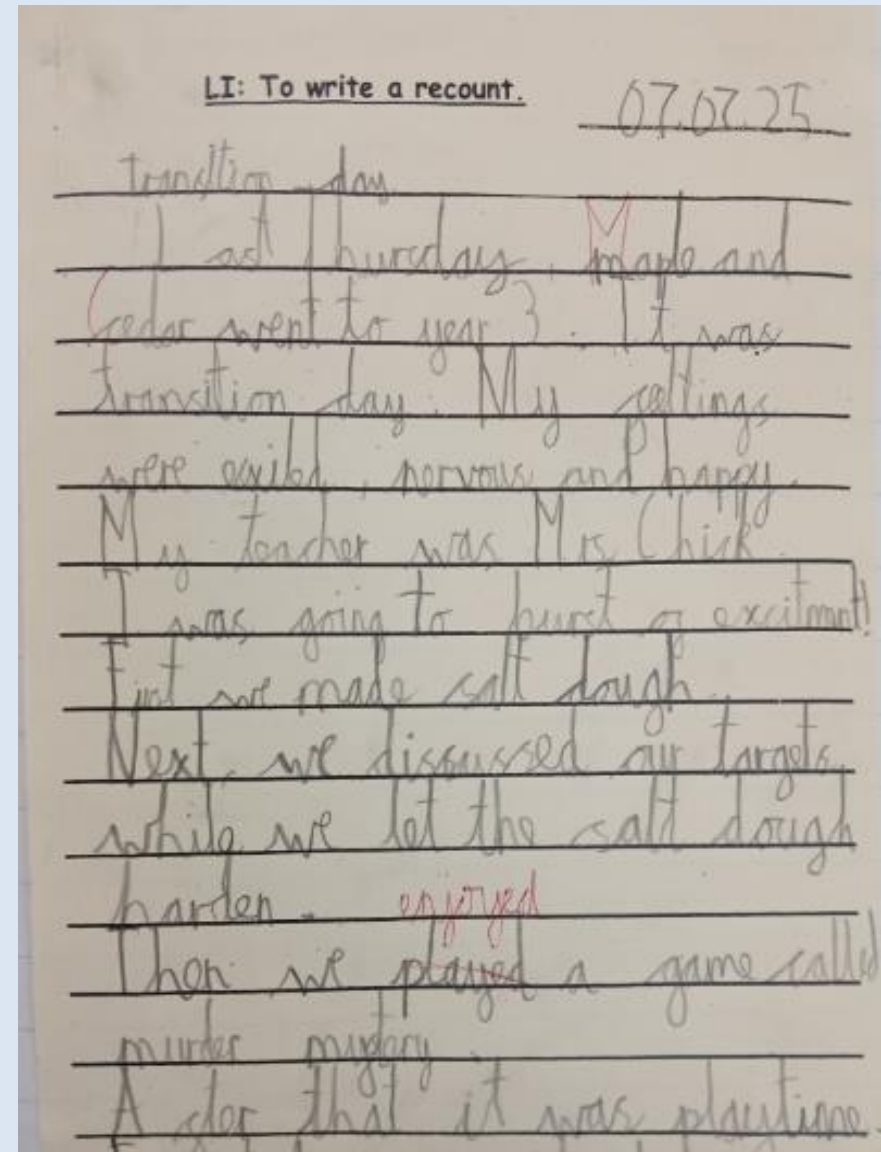 LI: To write a recount.
07.07.25
transition day
Last Thursday, Maple and
Cedar went to year 3. It was
transition day. My
were exited, nervous and happy.
My teacher was Mrs Chick.
I was going to burst of excitmont!
First we made salt dough.
Next, we disscussed our targets
while we let the salt dough
harden. enjoyed
Then we played a game called
murder mystery.
After that it was playtime.